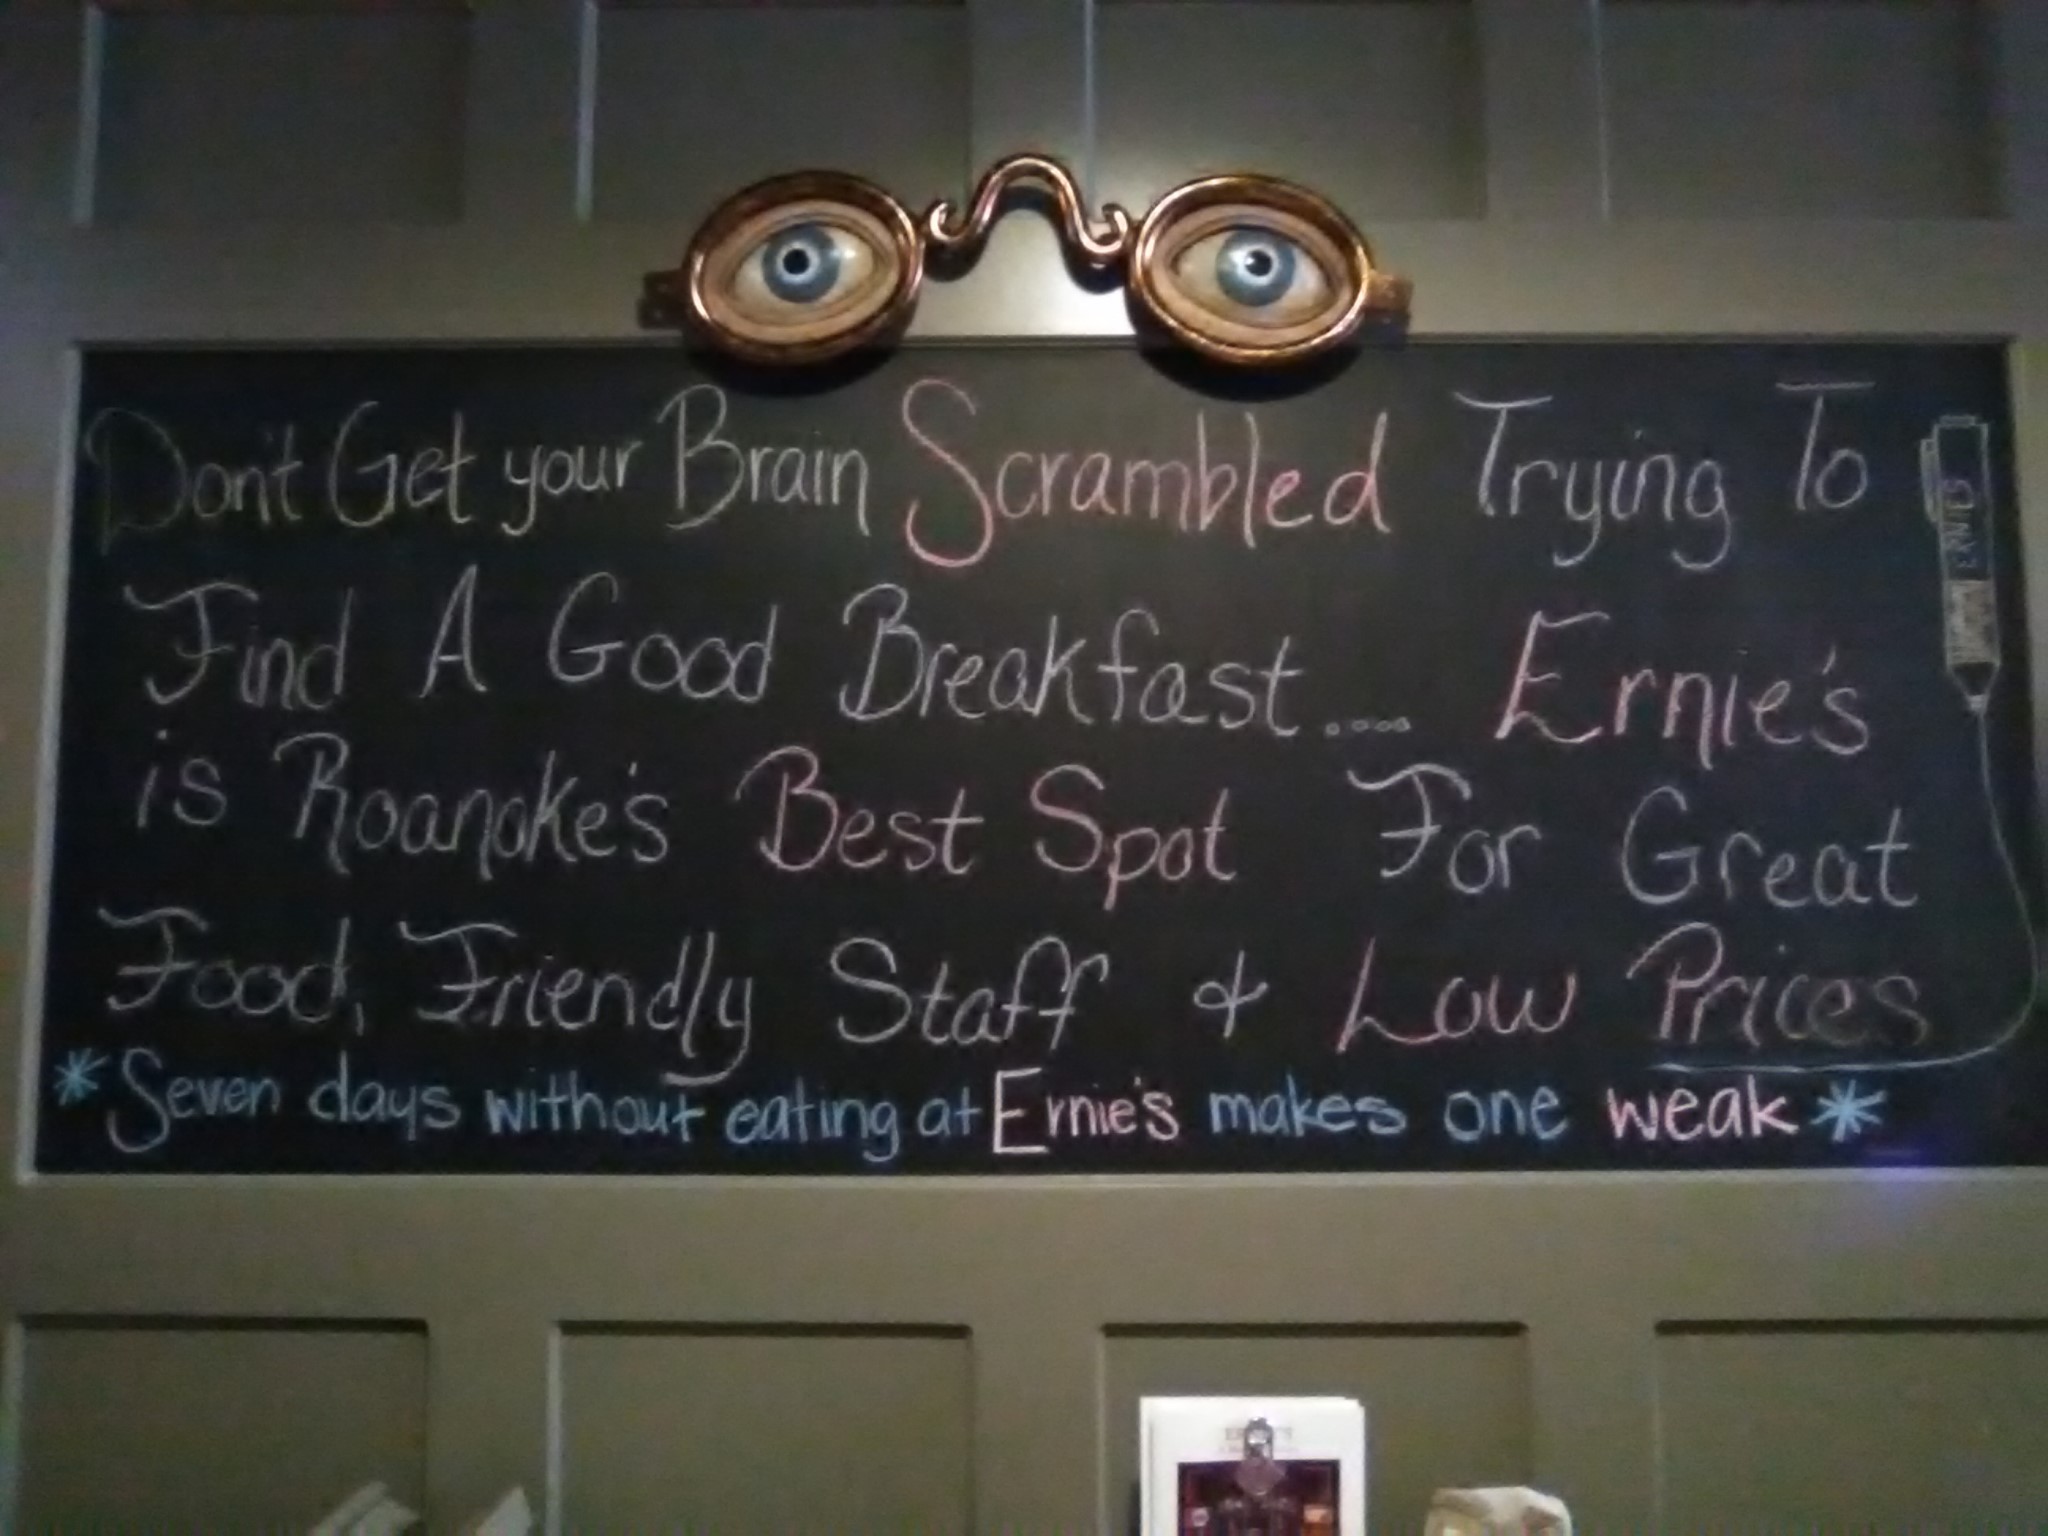 Don't Get your Brain Scrambled Trying To
Find A Good Breakfast..... Ernie's
is Roanoke's Best Spot For Great
Food, Friendly Staff & Low Prices
*Seven days without eating at Ernie's makes one weak*
ERNIES